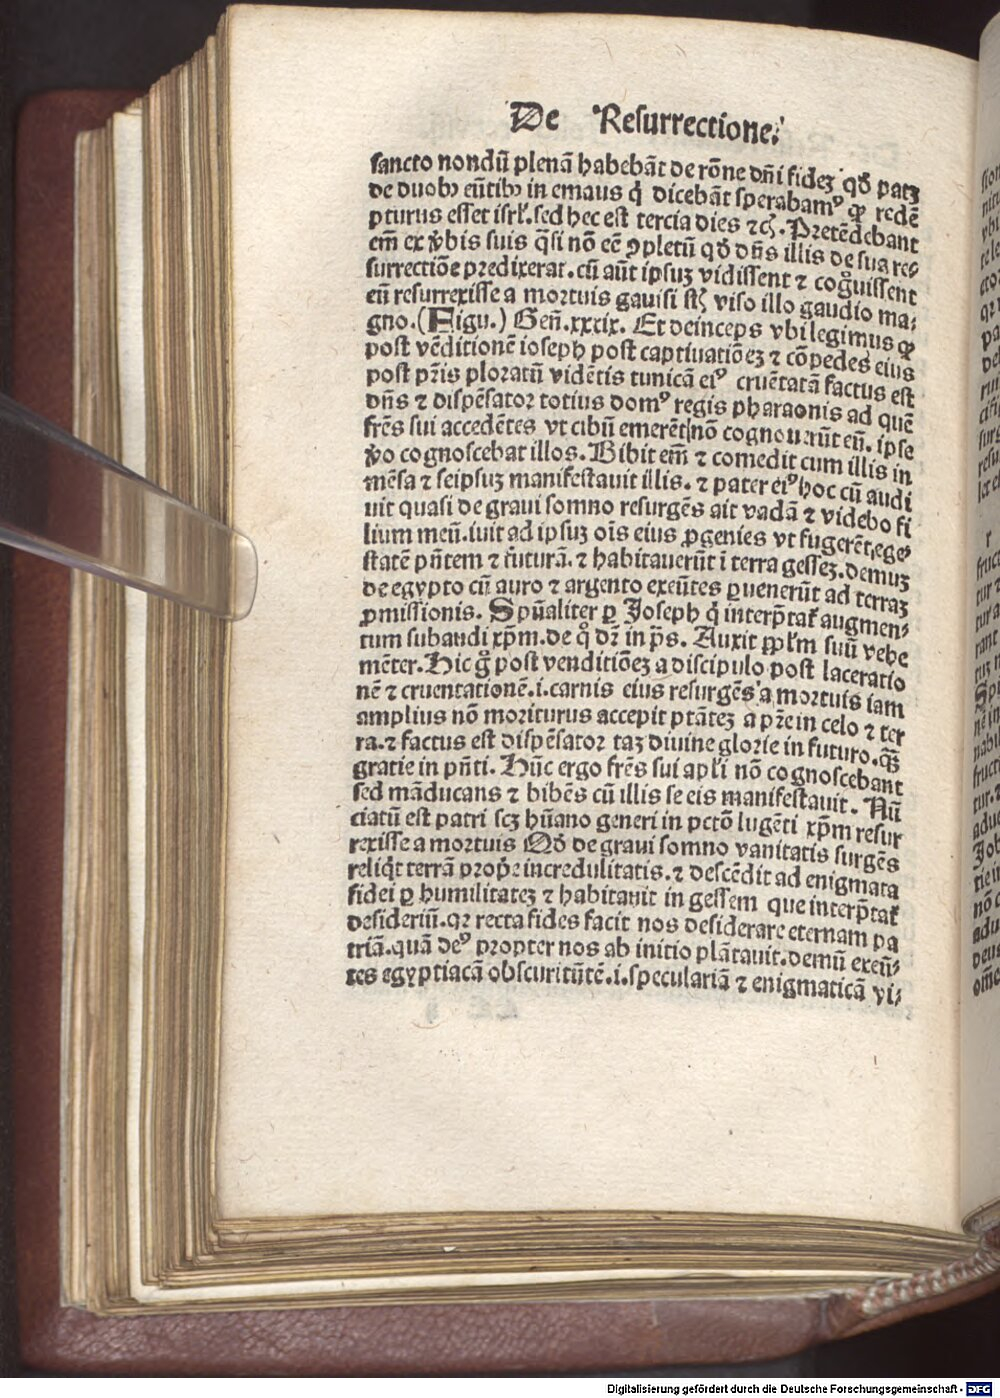 De Resurrectione.
sancto nondū plenā habebāt de rōne dn̄i fidez qđ patꝫ
de duobꝰ eūtibꝰ in emaus q̇ dicebāt sperabamꝰ ꝙ redē
pturus esset isrl̄. sed hec est tercia dies ⁊cꝫ. Pretēdebant
em̄ ex v̓bis suis q̄si nō eē ↄpletū qđ dn̄s illis de sua re-
surrectiōe predixerat. cū aūt ipsuꝫ vidissent ⁊ cog̓uissent
eū resurrexisse a mortuis gauisi sūt viso illo gaudio ma-
gno. (Figu.) Gen̄. xxxix. Et deinceps vbi legimus ꝙ
post vēditionē ioseph post captiuatiōeꝫ ⁊ cōpedes eius
post pr̄is ploratū vidētis tunicā eiꝰ cruētatā factus est
dn̄s ⁊ dispēsator totius domꝰ regis pharaonis ad quē
fr̄es sui accedētes vt cibū emerēt nō cognouerūt eū. ipse
v̓o cognoscebat illos. Bibit em̄ ⁊ comedit cum illis in
mēsa ⁊ seipsuꝫ manifestauit illis. ⁊ pater eiꝰ hoc cū audi
uit quasi de graui somno resurgēs ait vadā ⁊ videbo fi
lium meū. iuit ad ipsuꝫ oīs eius ꝓgenies vt fugerēt ege-
statē pn̄tem ⁊ futurā. ⁊ habitauerūt ī terra gesseꝫ. demuꝫ
de egypto cū auro ⁊ argento exeūtes ꝑuenerūt ad terraꝫ
ꝓmissionis. Spūaliter ꝑ Joseph q̇ interp̄tat̄ augmen-
tum subaudi xp̄m. de q̊ dr̄ in ps̄. Auxit ppl̄m suū vehe
mēter. Hic g̊ post venditiōeꝫ a discipulo post laceratio
nē ⁊ cruentationē. i. carnis eius resurgēs a mortuis iam
amplius nō moriturus accepit ptāteꝫ a pr̄e in celo ⁊ ter
ra. ⁊ factus est dispēsator taꝫ diuine glorie in futuro. ꝙ̄ꝫ
gratie in pn̄ti. Hūc ergo fr̄es sui apl̄i nō cognoscebant
sed māducans ⁊ bibēs cū illis se eis manifestauit. Nū
ciatū est patri scꝫ hūano generi in pctō lugēti xp̄m resur
rexisse a mortuis Qđ de graui somno vanitatis surgēs
reliq̇t terrā prop̄e incredulitatis. ⁊ descēdit ad enigmata
fidei ꝑ humilitateꝫ ⁊ habitauit in gessem que interp̄tat̄
desideriū. qꝛ recta fides facit nos desiderare eternam pa
triā. quā deꝰ propter nos ab initio plātauit. demū exeū-
tes egyptiacā obscuritūtē. i. speculariā ⁊ enigmaticā vi-
Digitalisierung gefördert durch die Deutsche Forschungsgemeinschaft - DFG